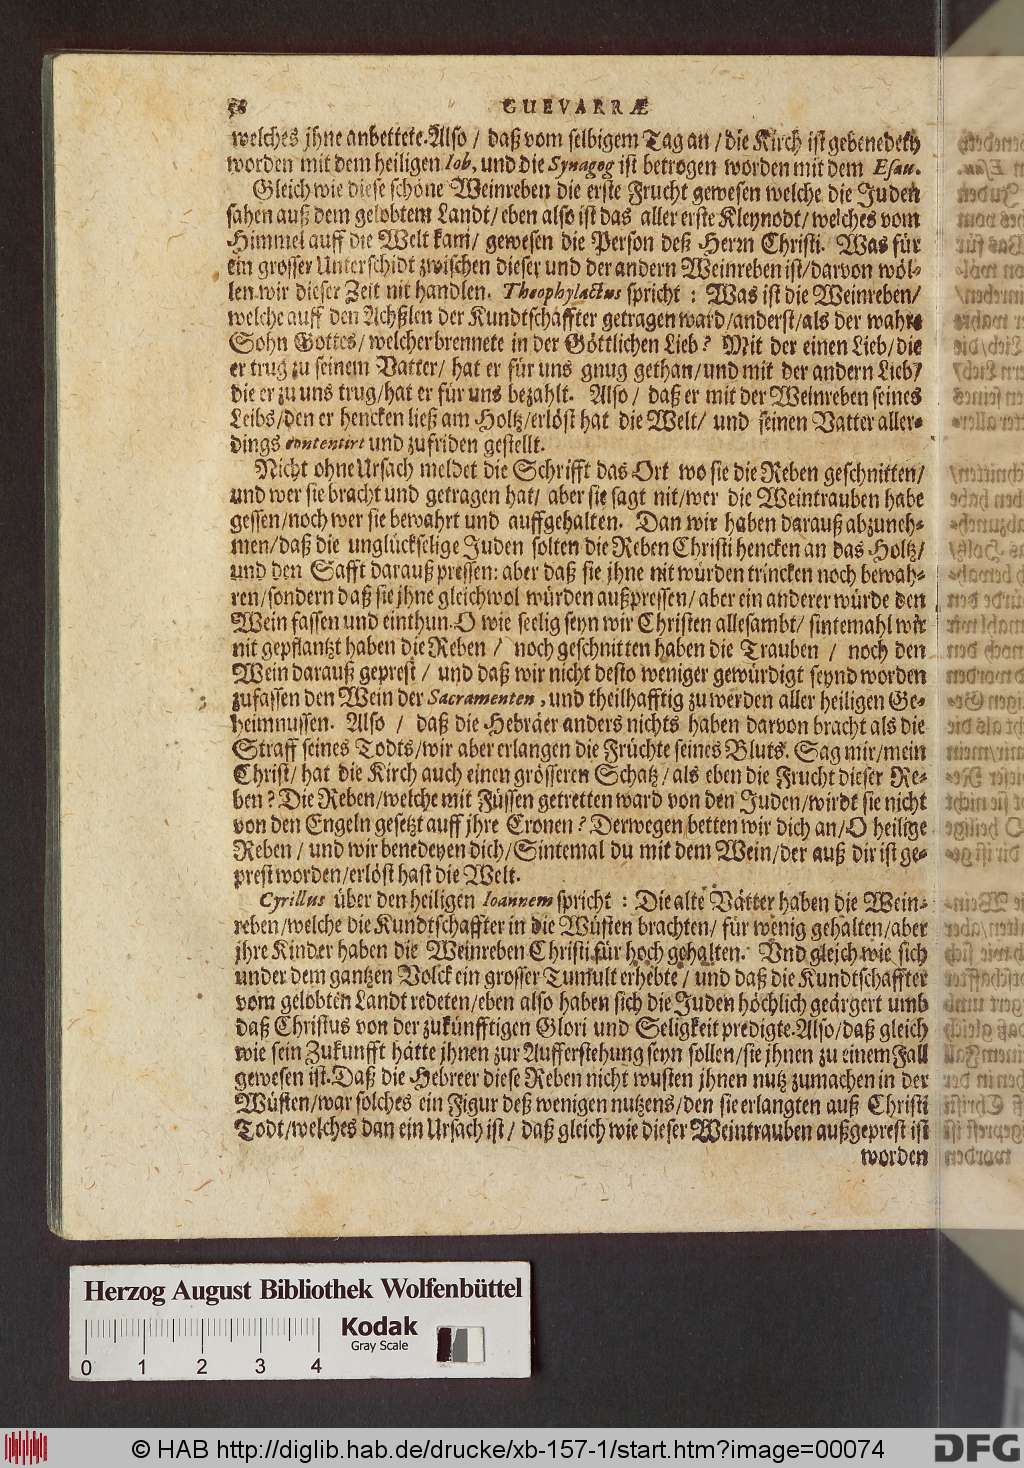 58 GUEVARRÆ
welches jhne anbettete. Also / daß vom selbigem Tag an / die Kirch ist gebenedeyt
worden mit dem heiligen Iob, und die Synagog ist betrogen worden mit dem Esau.
Gleich wie diese schöne Weinreben die erste Frucht gewesen welche die Juden
sahen auß dem gelobtem Landt / eben also ist das aller erste Kleynodt / welches vom
Himmel auff die Welt kam / gewesen die Person deß Herrn Christi. Was für
ein grosser Unterschidt zwischen dieser und der andern Weinreben ist / darvon wöl-
len wir dieser Zeit nit handlen. Theophylactus spricht : Was ist die Weinreben /
welche auff den Achßlen der Kundtschaffter getragen ward / anderst / als der wahre
Sohn Gottes / welcher brennete in der Göttlichen Lieb? Mit der einen Lieb / die
er trug zu seinem Vatter / hat er für uns gnug gethan / und mit der andern Lieb /
die er zu uns trug / hat er für uns bezahlt. Also / daß er mit der Weinreben seines
Leibs / den er hencken ließ am Holtz / erlöst hat die Welt / und seinen Vatter aller-
dings contentirt und zu friden gestellt.
Nicht ohne Ursach meldet die Schrifft das Ort wo sie die Reben geschnitten /
und wer sie bracht und getragen hat / aber sie sagt nit / wer die Weintrauben habe
gessen / noch wer sie bewahrt und auffgehalten. Dan wir haben darauß abzuneh-
men / daß die unglückselige Juden solten die Reben Christi hencken an das Holtz /
und den Safft darauß pressen: aber daß sie jhne nit würden trincken noch bewah-
ren / sondern daß sie jhne gleichwol würden außpressen / aber ein anderer würde den
Wein fassen und einthun. O wie seelig seyn wir Christen allesambt / sintemahl wir
nit gepflantzt haben die Reben / noch geschnitten haben die Trauben / noch den
Wein darauß geprest / und daß wir nicht desto weniger gewürdigt seynd worden
zufassen den Wein der Sacramenten, und theilhafftig zu werden aller heiligen Ge-
heimnussen. Also / daß die Hebräer anders nichts haben darvon bracht als die
Straff seines Todts / wir aber erlangen die Früchte seines Bluts. Sag mir / mein
Christ / hat die Kirch auch einen grösseren Schatz / als eben die Frucht dieser Re-
ben? Die Reben / welche mit Füssen getretten ward von den Juden / wirdt sie nicht
von den Engeln gesetzt auff jhre Cronen? Derwegen betten wir dich an / O heilige
Reben / und wir benedeyen dich / Sintemal du mit dem Wein / der auß dir ist ge-
prest worden / erlöst hast die Welt.
Cyrillus über den heiligen Ioannem spricht : Die alte Vätter haben die Wein-
reben / welche die Kundtschaffter in die Wüsten brachten / für wenig gehalten / aber
jhre Kinder haben die Weinreben Christi für hoch gehalten. Vnd gleich wie sich
under dem gantzen Volck ein grosser Tumult erhebte / und daß die Kundtschaffter
vom gelobten Landt redeten / eben also haben sich die Juden höchlich geärgert umb
daß Christus von der zukünfftigen Glori und Seligkeit predigte. Also / daß gleich
wie sein Zukunfft hätte jhnen zur Aufferstehung seyn sollen / sie jhnen zu einem Fall
gewesen ist. Daß die Hebreer diese Reben nicht wusten jhnen nutz zumachen in der
Wüsten / war solches ein Figur deß wenigen nutzens / den sie erlangten auß Christi
Todt / welches dan ein Ursach ist / daß gleich wie dieser Weintrauben außgeprest ist
worden
Herzog August Bibliothek Wolfenbüttel
Kodak
Gray Scale
0 1 2 3 4
© HAB http://diglib.hab.de/drucke/xb-157-1/start.htm?image=00074
DFG